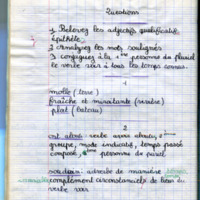 Questions
1 Relevez les adjectifs qualificatifs
épithète
2 Analysez les mots soulignés
3 conjuguez à la 1ère personne du pluriel
le verbe voir à tous les temps connus
1
molle (terre)
fraîche et miroitante (rosée)
plat (bateau)
2
verbe avoir
groupe, mode indicatif, temps passé
composé, personne du
soudain : adverbe de manière
complément circonstanciel de
verbe voir